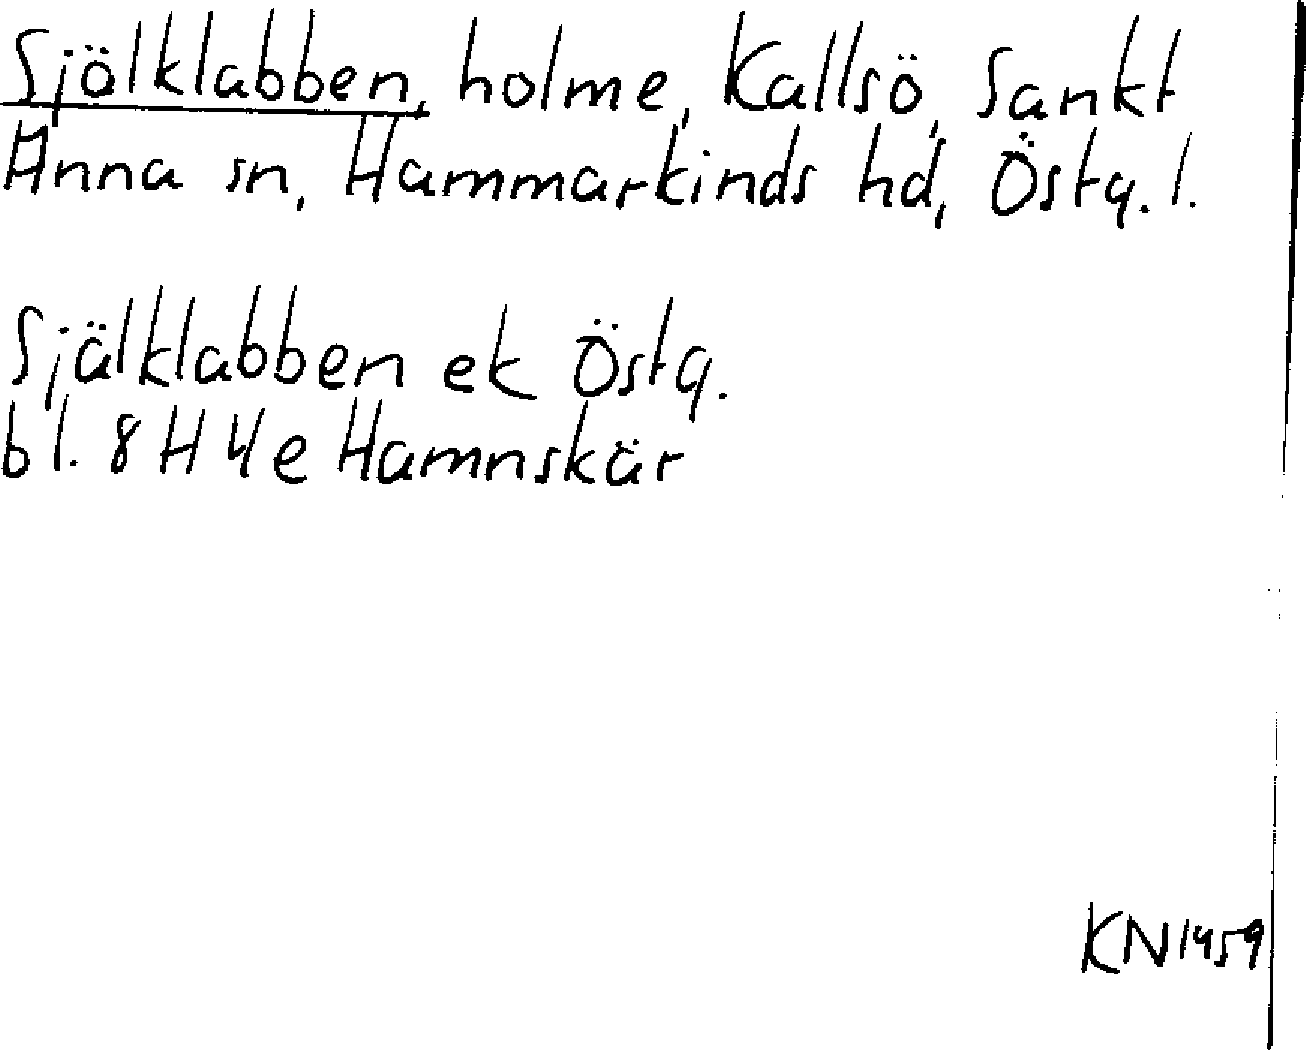 Sjölklabben, holme, Kallsö, Sankt
Anna sn, Hammarkinds hd, Östg. l.
Själklabben ek Östg.
bl. 8 H 4e Hamnskär
KN 1959